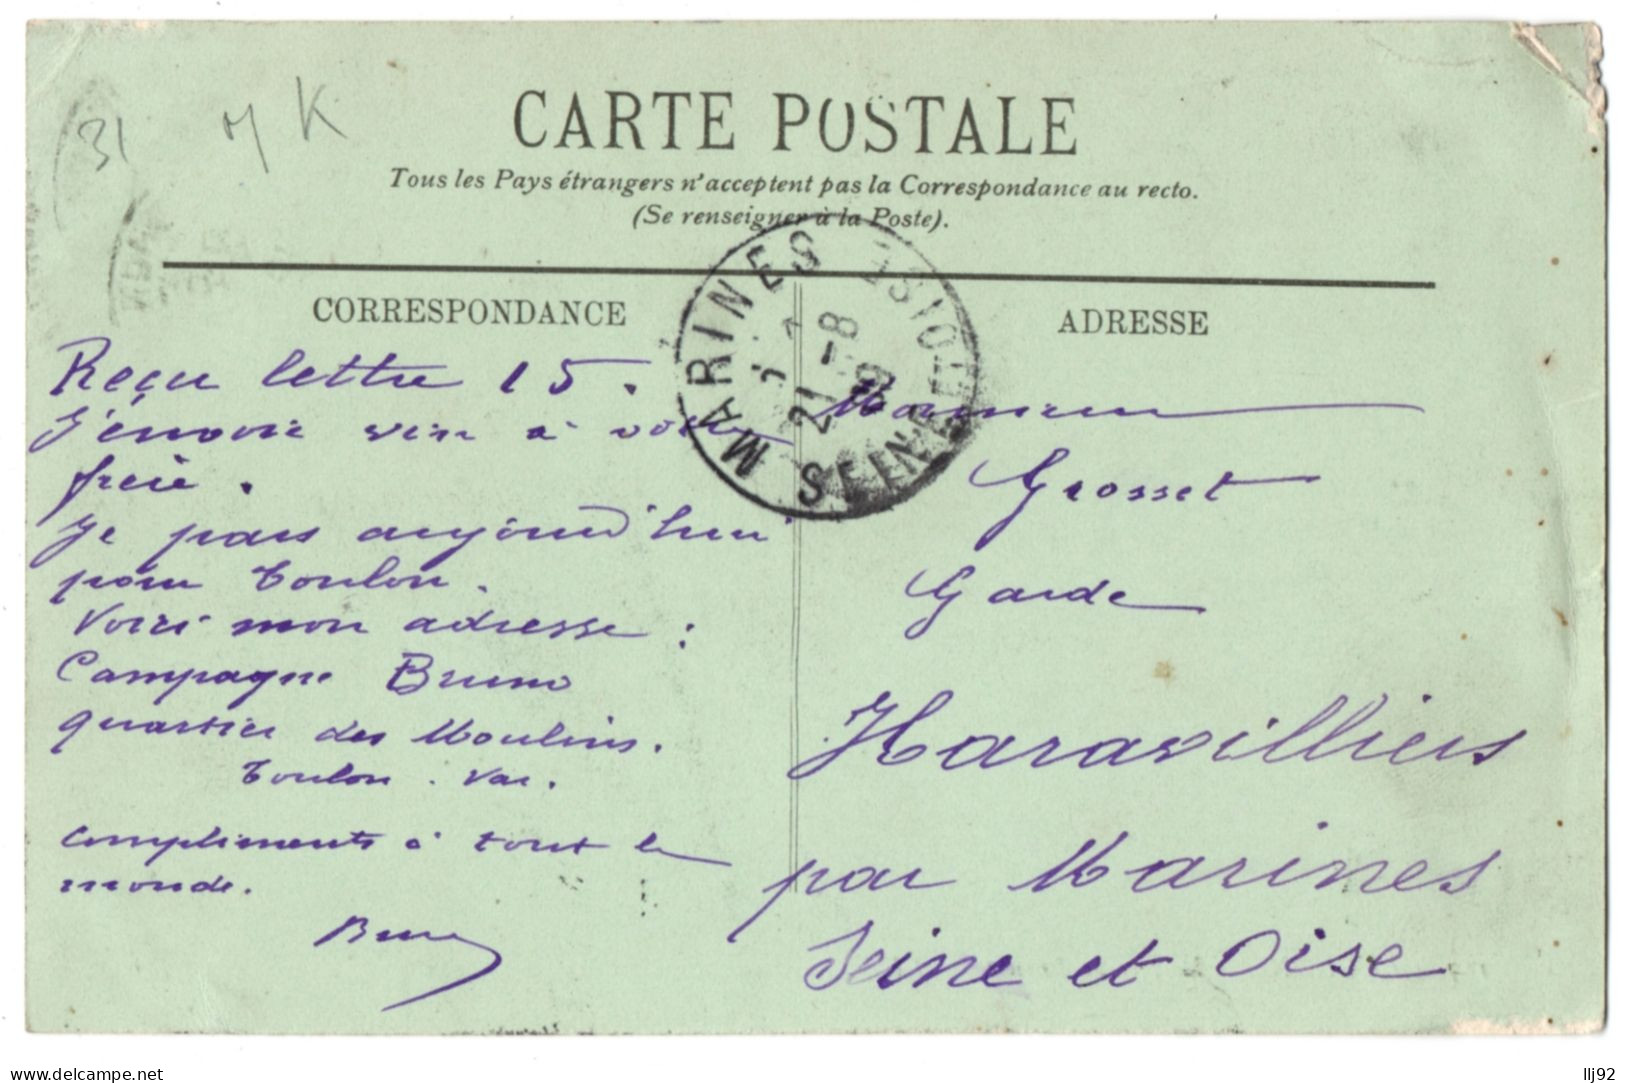 31 M K
CARTE POSTALE
Tous les Pays étrangers n'acceptent pas la Correspondance au recto.
(Se renseigner à la Poste).
CORRESPONDANCE
Reçu lettre 15.
J'envoie vin à votre
frère.
Je pars aujourd'hui
pour Toulon.
Voici mon adresse :
Campagne Bruno
quartier des Moulins.
Toulon. Var.
Compliments à tout le
monde.
Bruno
MARINES
21 - 8
SEINE ET OISE
ADRESSE
Monsieur
Grosset
Garde
Haravilliers
par Marines
Seine et Oise
delcampe.net
llj92